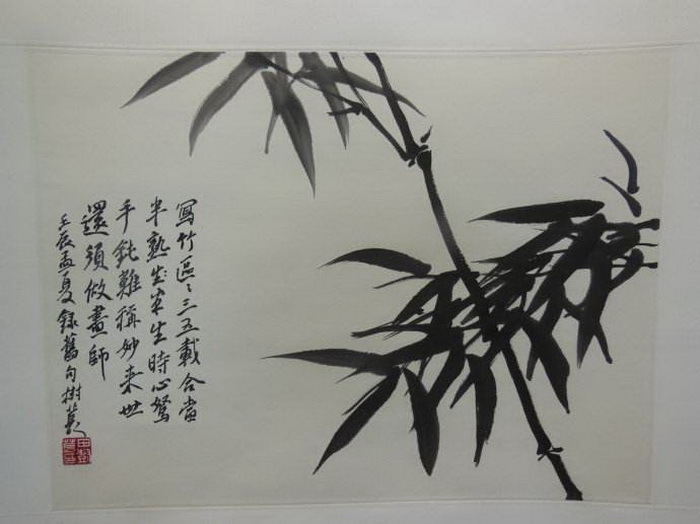 寫竹區々三五載合當
半熟半生時心驚
手鈍難稱妙来世
還須做畫師
壬辰孟夏錄舊句樹